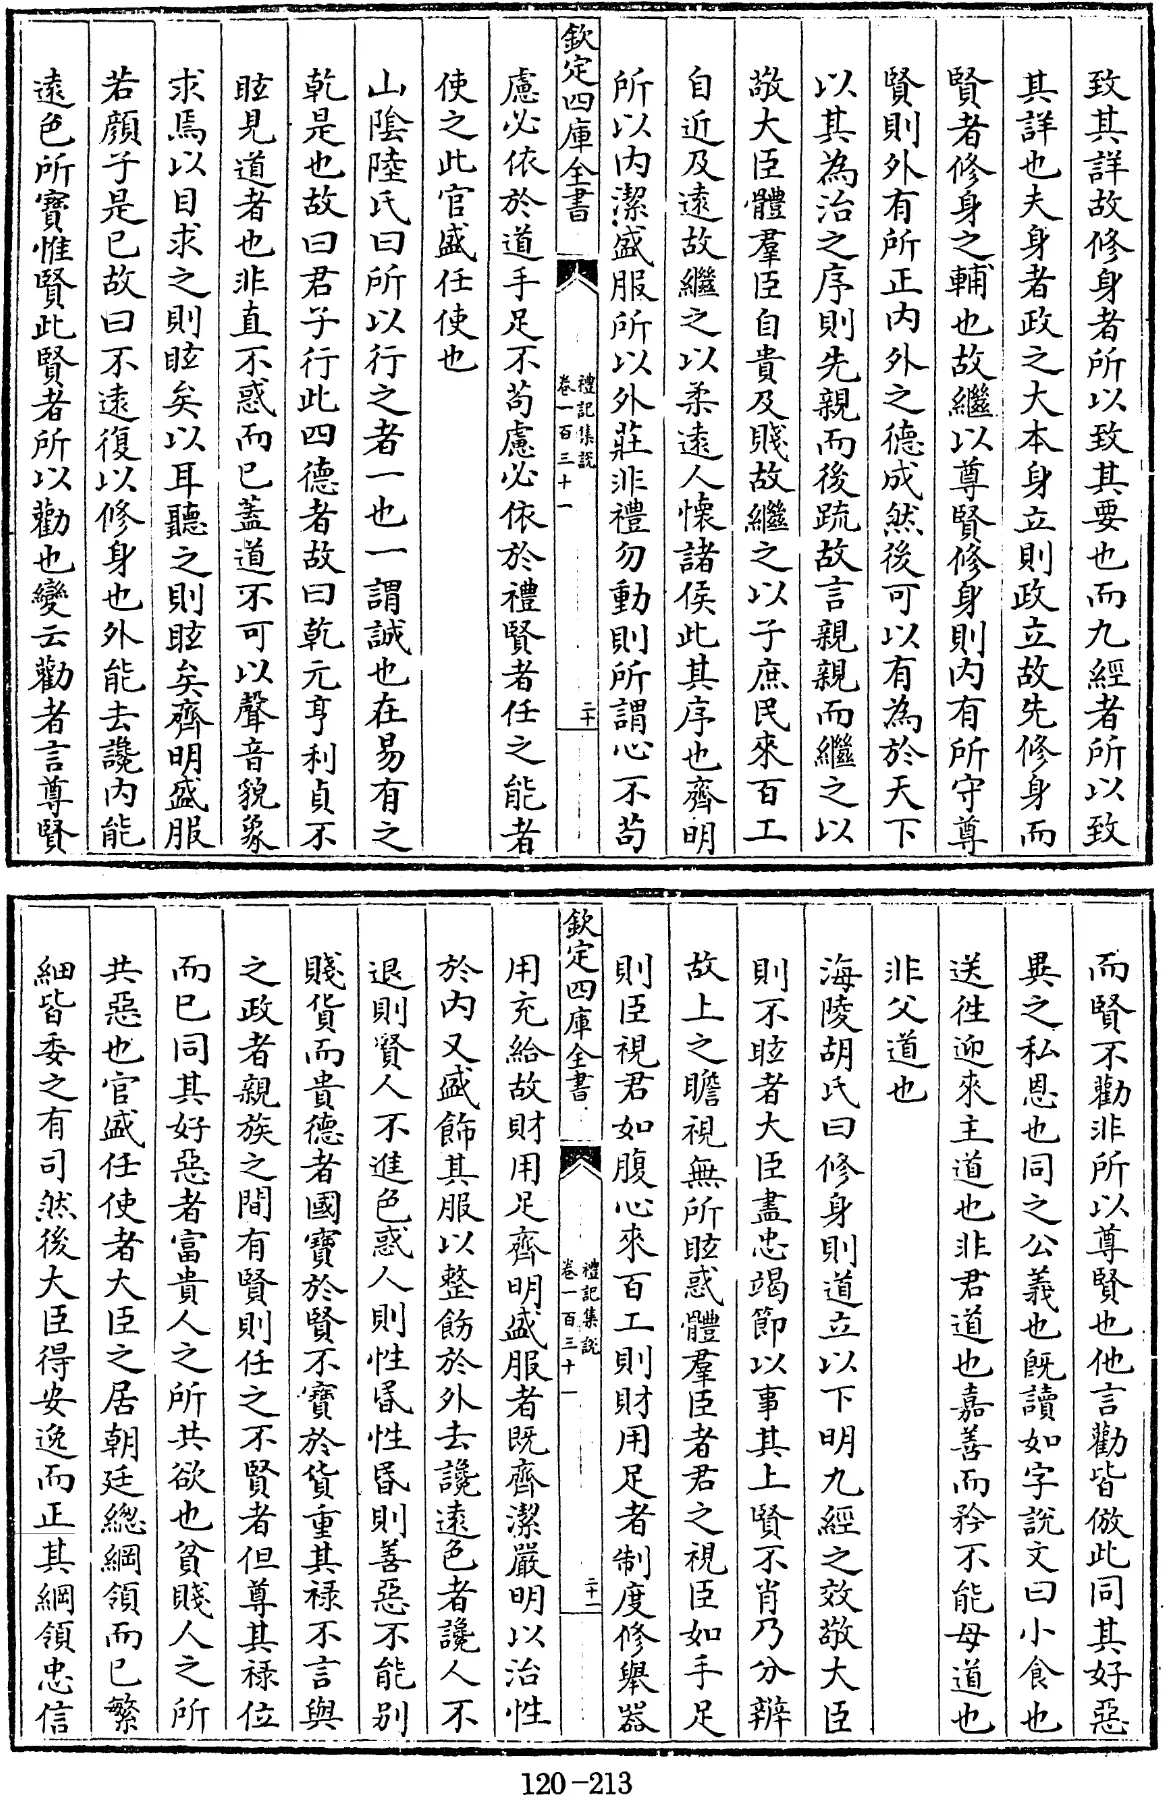 致其詳故修身者所以致其要也而九經者所以致
其詳也夫身者政之大本身立則政立故先修身而
賢者修身之輔也故繼以尊賢修身則内有所守尊
賢則外有所正内外之德成然後可以有為於天下
以其為治之序則先親而後疏故言親親而繼之以
敬大臣體羣臣自貴及賤故繼之以子庶民來百工
自近及遠故繼之以柔遠人懷諸侯此其序也齊明
所以内潔盛服所以外莊非禮勿動則所謂心不苟
欽定四庫全書
禮記集説
卷一百三十一
二十
慮必依於道手足不苟慮必依於禮賢者任之能者
使之此官盛任使也
山陰陸氏曰所以行之者一也一謂誠也在易有之
乾是也故曰君子行此四德者故曰乾元亨利貞不
眩見道者也非直不惑而已蓋道不可以聲音貌象
求焉以目求之則眩矣以耳聽之則眩矣齊明盛服
若顔子是已故曰不遠復以修身也外能去讒内能
遠色所寶惟賢此賢者所以勸也變云勸者言尊賢
而賢不勸非所以尊賢也他言勸皆倣此同其好惡
異之私恩也同之公義也既讀如字說文曰小食也
送徃迎來主道也非君道也嘉善而矜不能母道也
非父道也
海陵胡氏曰修身則道立以下明九經之效敬大臣
則不眩者大臣盡忠竭節以事其上賢不肖乃分辨
故上之瞻視無所眩惑體羣臣者君之視臣如手足
則臣視君如腹心來百工則財用足者制度修舉器
欽定四庫全書
禮記集説
卷一百三十一
二十一
用充給故財用足齊明盛服者既齊潔嚴明以治性
於内又盛飾其服以整飭於外去讒遠色者讒人不
退則賢人不進色惑人則性昬性昬則善惡不能别
賤貨而貴德者國寶於賢不寶於貨重其禄不言與
之政者親族之間有賢則任之不賢者但尊其禄位
而已同其好惡者富貴人之所共欲也貧賤人之所
共惡也官盛任使者大臣之居朝廷總綱領而已繁
細皆委之有司然後大臣得安逸而正其綱領忠信
120-213